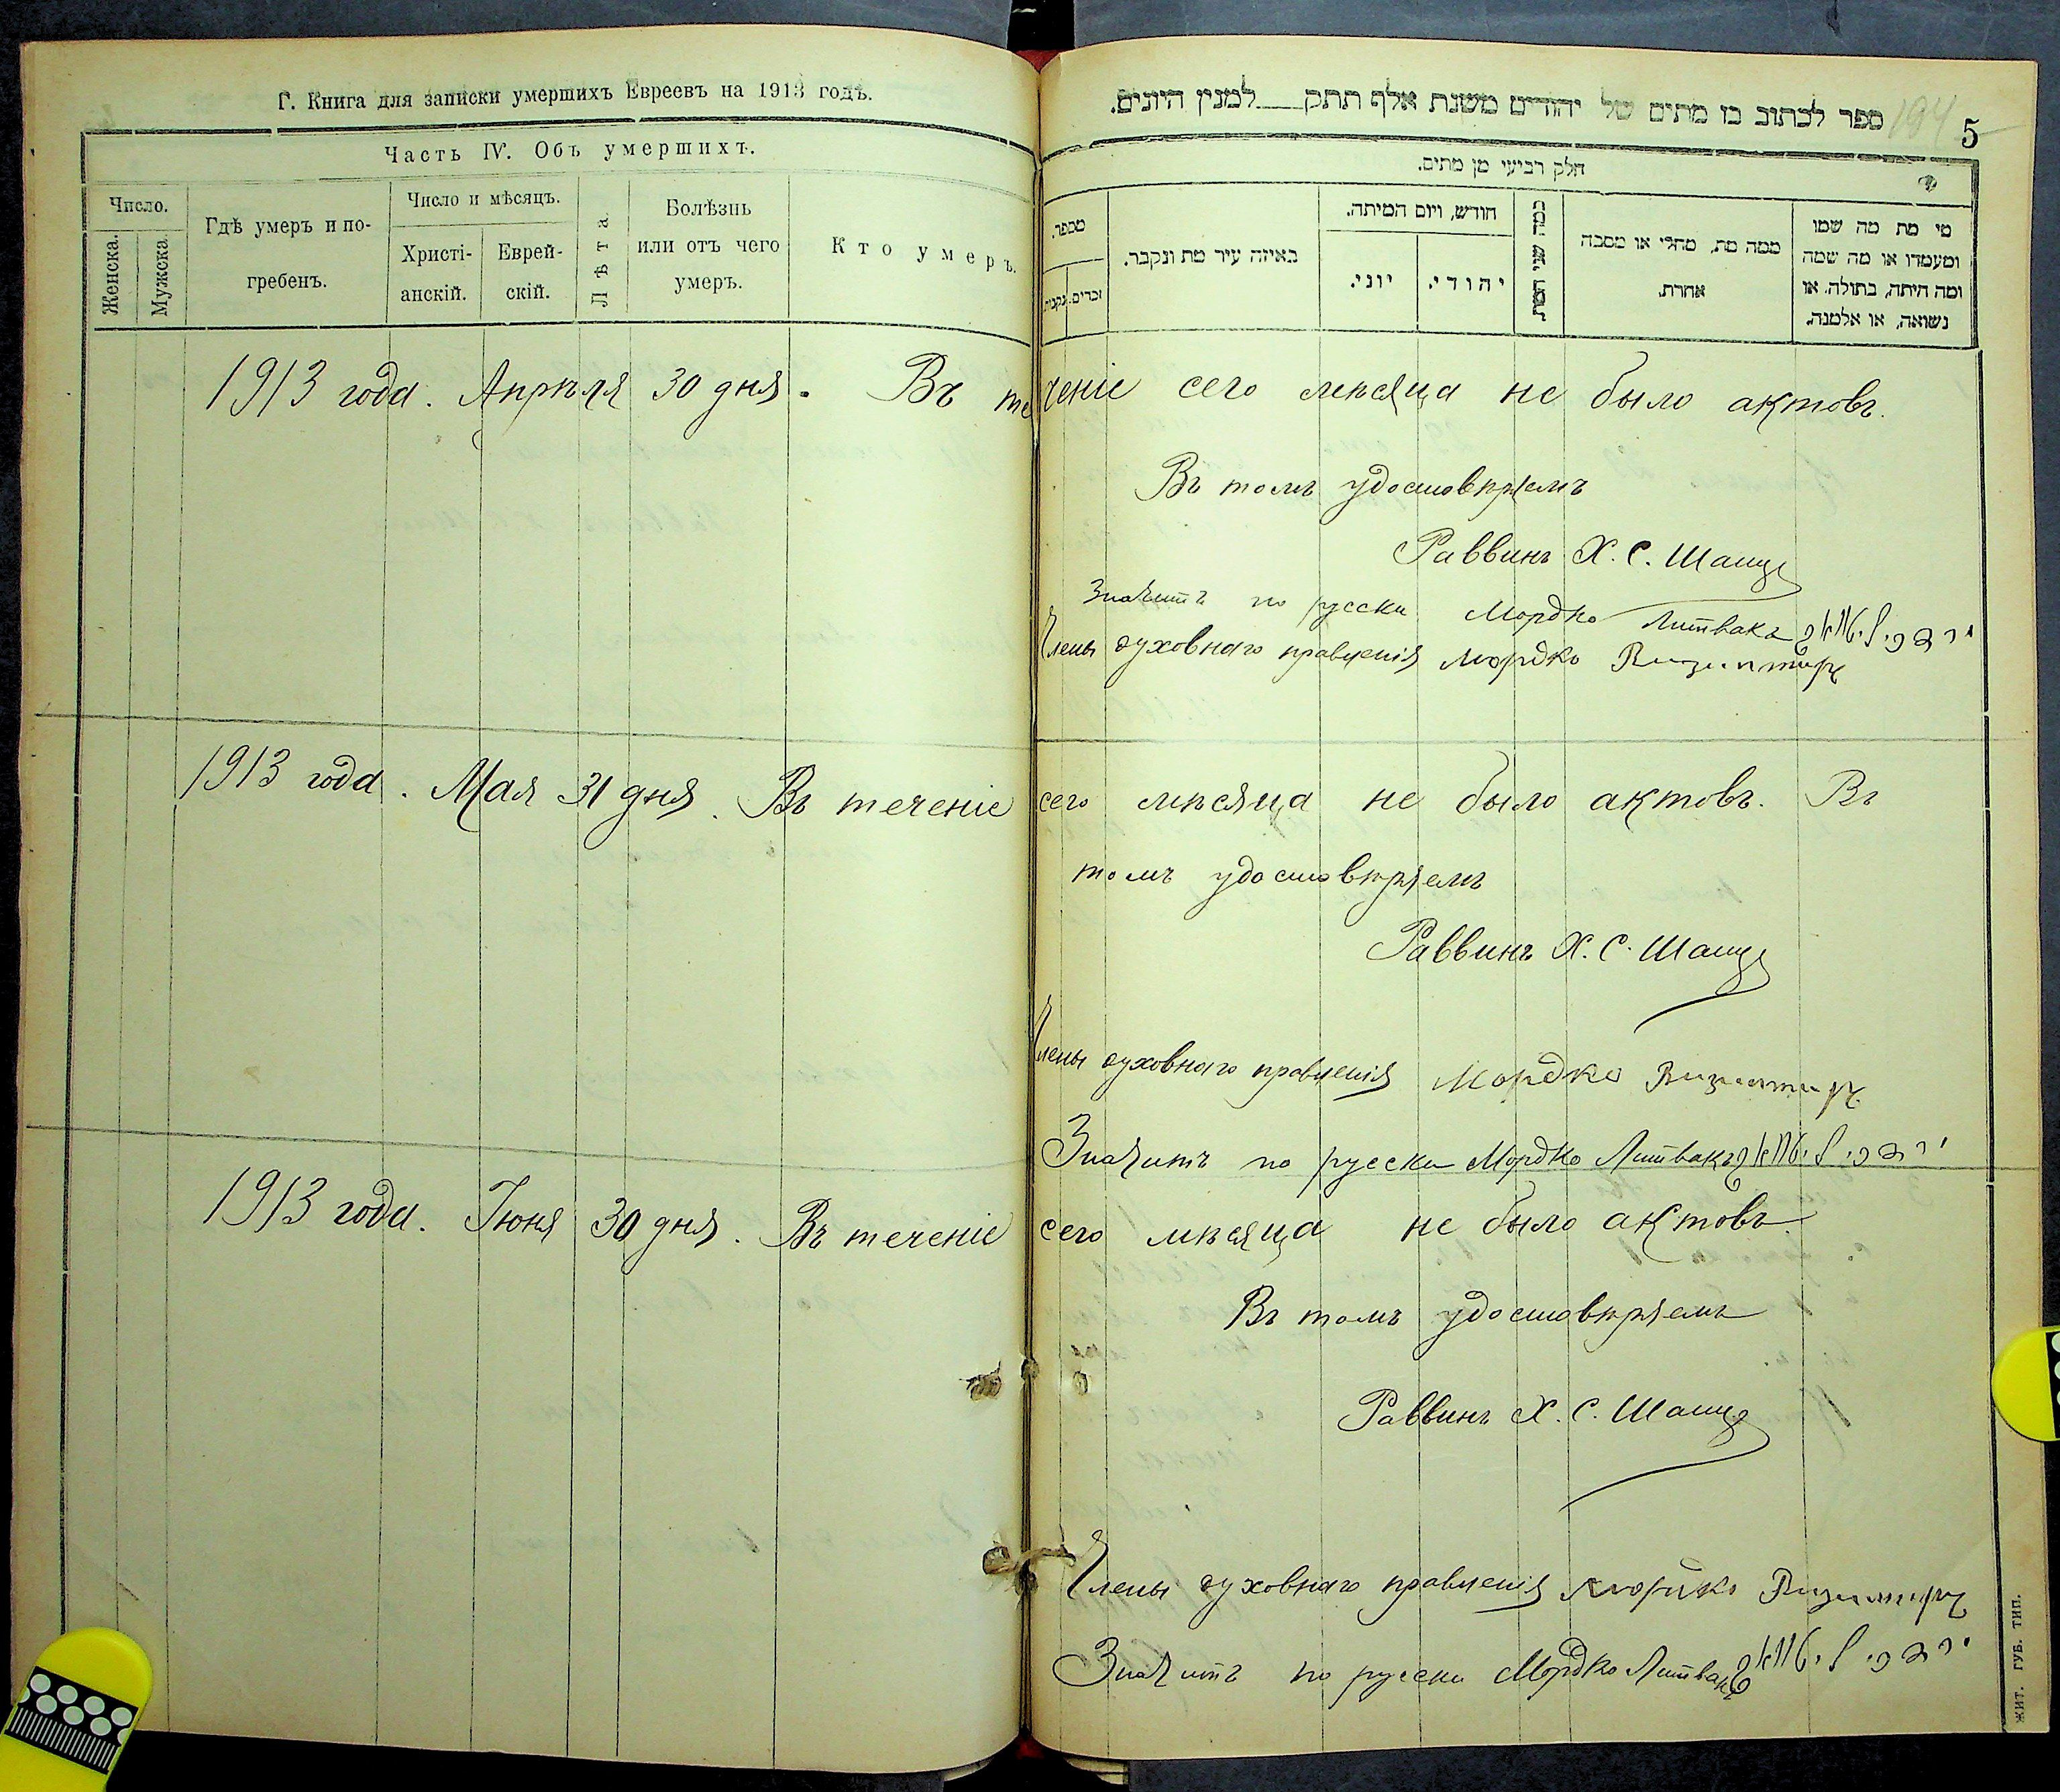 Г. Книга для записки умершихъ Евреевъ на 1913 годъ.
Часть IV. Объ умершихъ.
Число.
Женска.
Мужска.
Гдѣ умеръ и по-
гребенъ.
Число и мѣсяцъ.
Христі-
анскій.
Еврей-
скій.
Лѣта.
Болѣзнь
или отъ чего
умеръ.
Кто умеръ.
ספר לכתוב בו מתים של יהודים משנת אלף תתק למנין היונים.
194
5
חלק רביעי מן מתים.
מספר.
זכרים.
נקבות.
באיזה עיר מת ונקבר.
חודש, ויום המיתה.
יוני.
יהודי.
כמה שני המת.
ממה מת, מחלי או מסבה
אחרת.
מי מת מה שמו
ומעמדו או מה שמה
ומה היתה, בתולה, או
נשואה, או אלמנה.
1913 года. Апрѣля 30 дня. Въ теченіе сего мѣсяца не было актовъ.
Въ томъ удостовѣряемъ
Раввинъ Х. С.
Значитъ по русски Мордко Литвакъ
Члены духовнаго правленія Мордко
1913 года. Мая 31 дня. Въ теченіе сего мѣсяца не было актовъ. Въ
томъ удостовѣряемъ
Раввинъ Х. С.
Члены духовнаго правленія Мордко
Значитъ по русски Мордко Литвакъ
1913 года. Іюня 30 дня. Въ теченіе сего мѣсяца не было актовъ
Въ томъ удостовѣряемъ
Раввинъ Х. С.
Члены духовнаго правленія Мордко
Значитъ по русски Мордко Литвакъ
ЖИТ. ГУБ. ТИП.